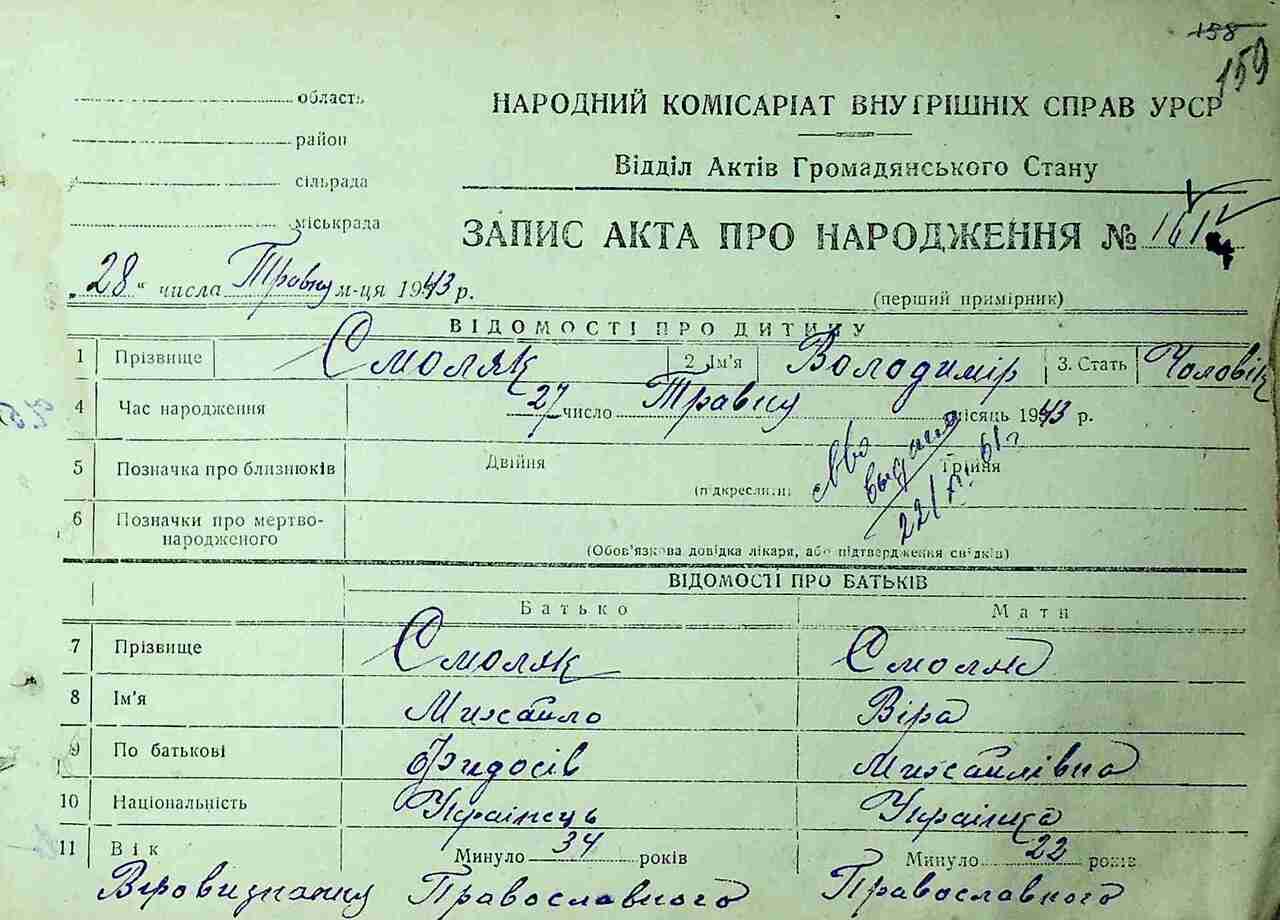 158
159
область
район
сільрада
міськрада
НАРОДНИЙ КОМІСАРІАТ ВНУТРІШНІХ СПРАВ УРСР
Відділ Актів Громадянського Стану
ЗАПИС АКТА ПРО НАРОДЖЕННЯ №
„28“ числа Травня м-ця 1943 р.
(перший примірник)
ВІДОМОСТІ ПРО ДИТИНУ
1 Прізвище Смоляк 2. Ім'я Володимір 3. Стать Чоловік
4 Час народження 27 число Травня місяць 1943 р.
5 Позначка про близнюків Двійня Трійня
(підкреслити)
св-во
выдано
22/XI 61 г
6 Позначки про мертво-
народженого
(Обов'язкова довідка лікаря, або підтвердження свідків)
ВІДОМОСТІ ПРО БАТЬКІВ
Батько Мати
7 Прізвище Смоляк Смоляк
8 Ім'я Михайло Віра
9 По батькові Фидосів Михайлівна
10 Національність Українець Українка
11 Вік Минуло 34 років Минуло 22 років
Віровизнання Православного Православного